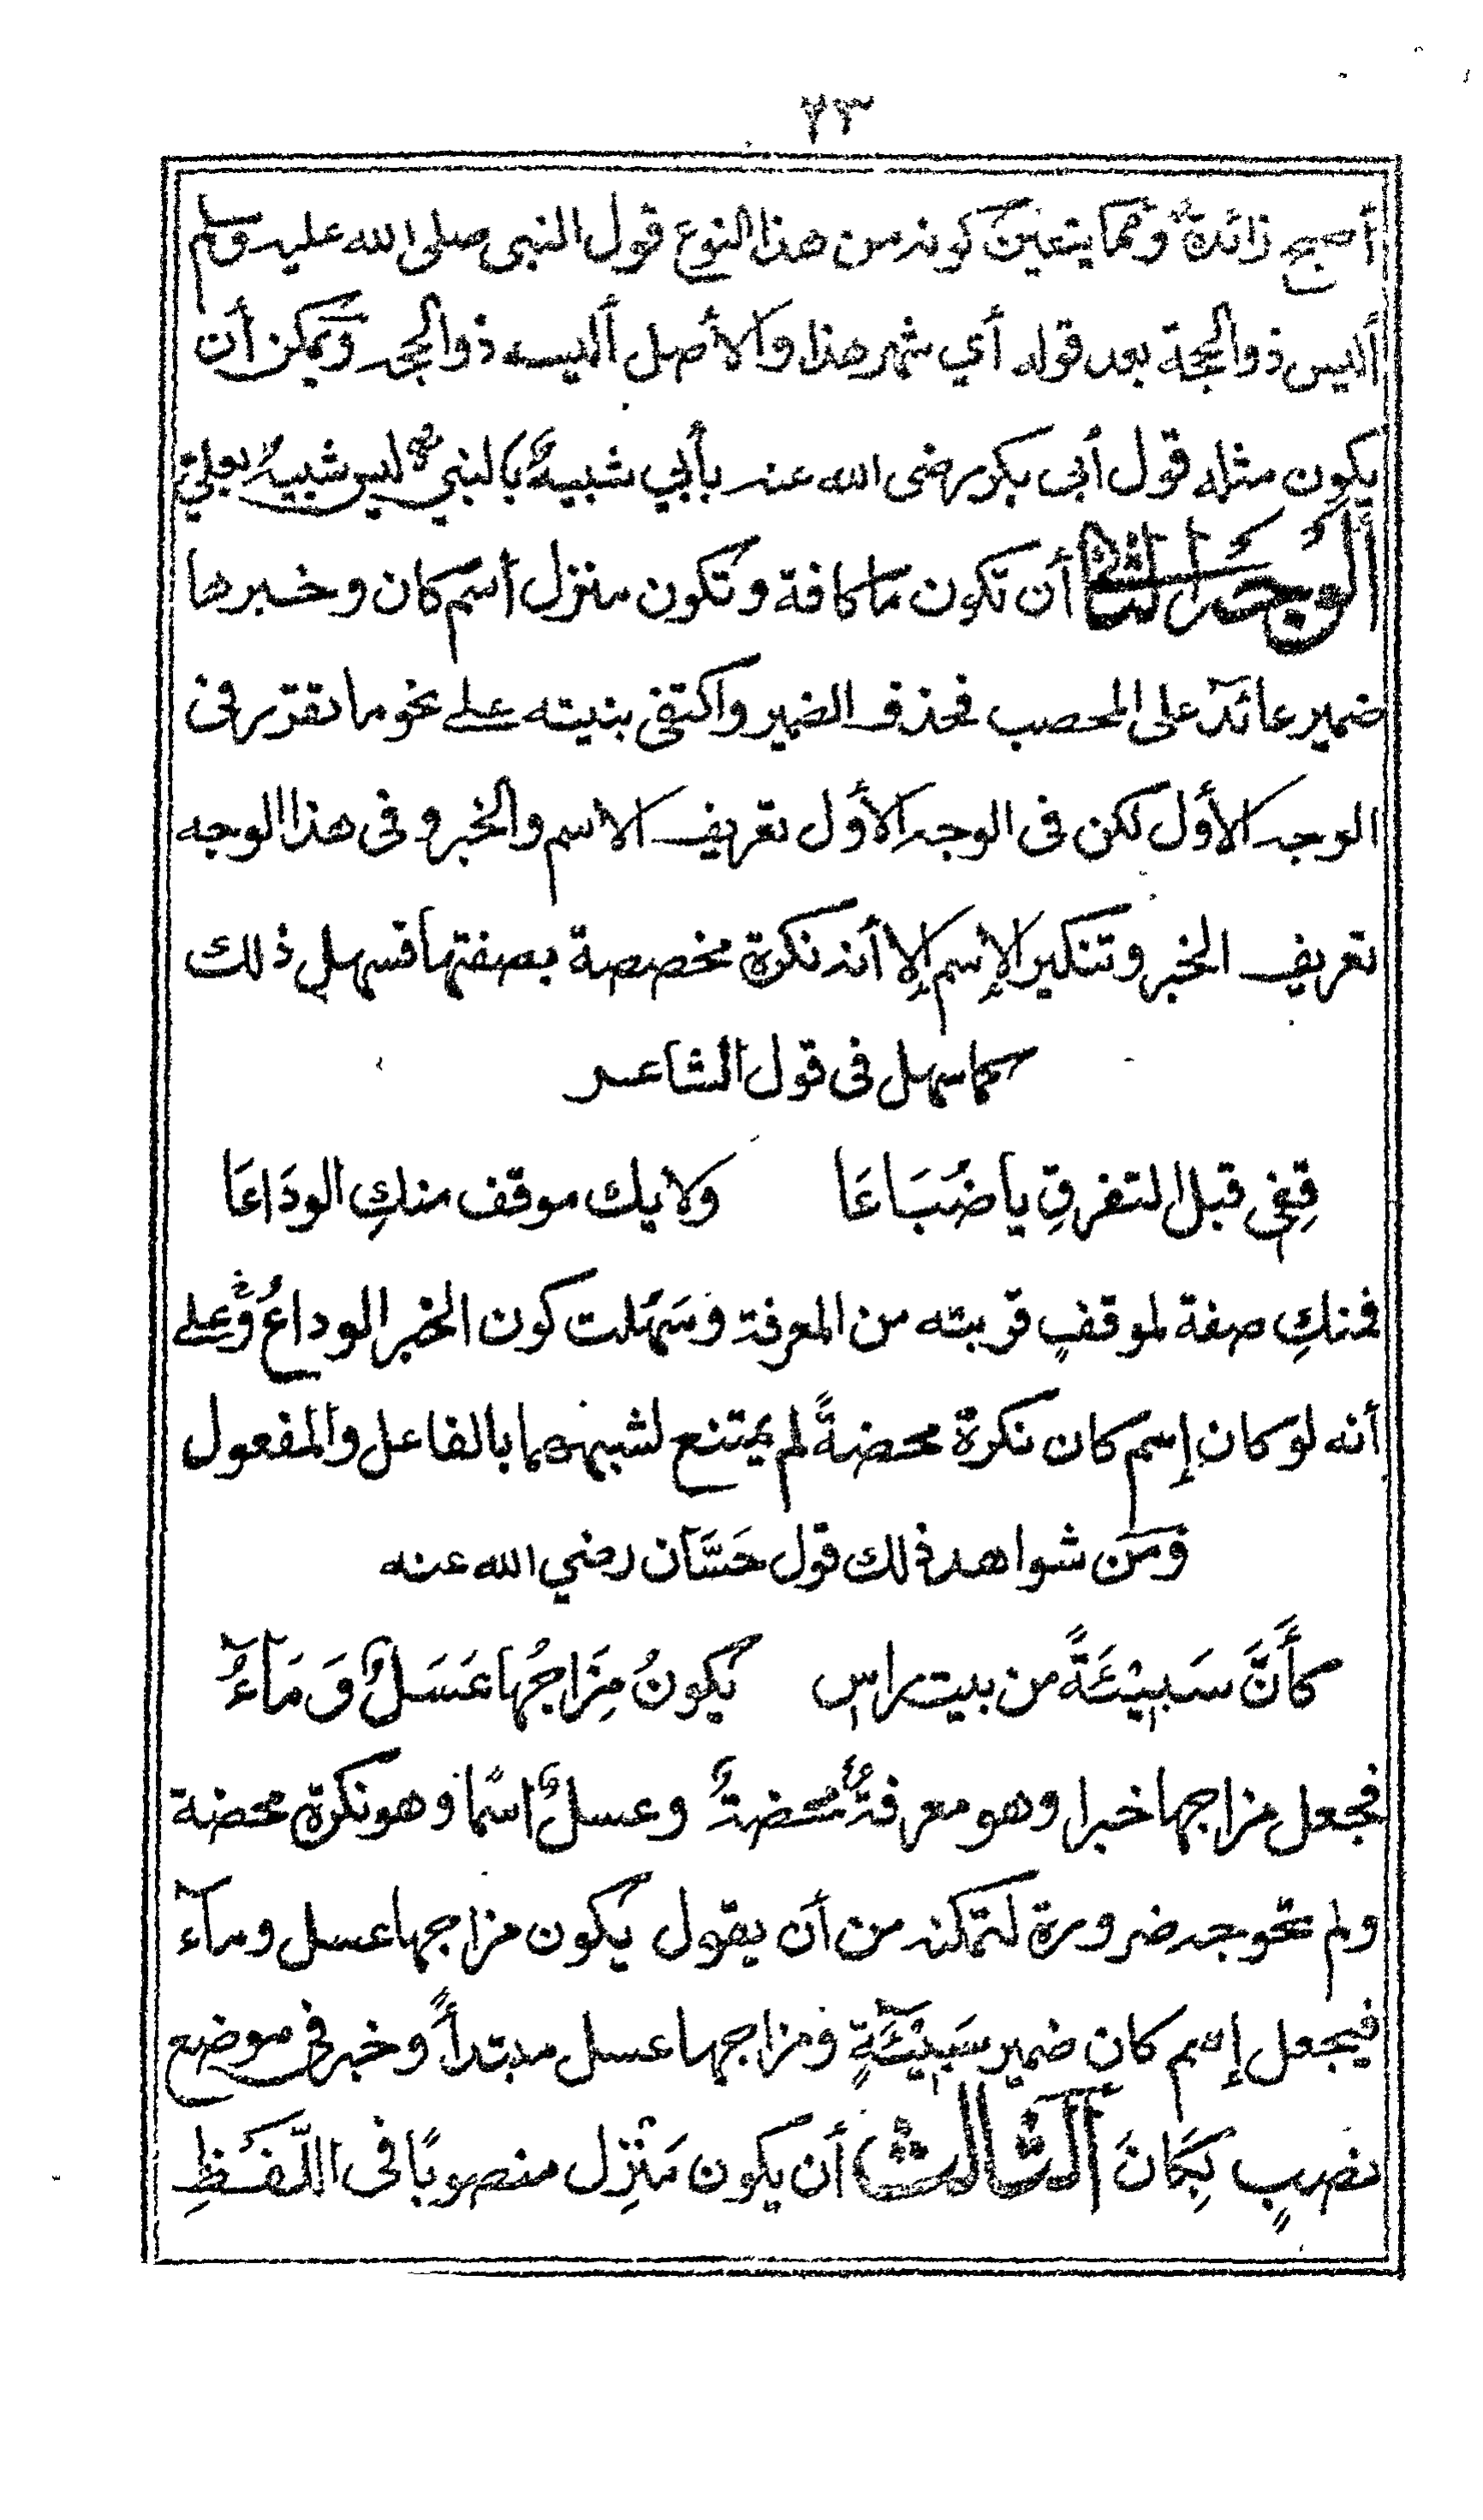 ٢٣
أصبح زائدة ومما يتعين كونه من هذا النوع قول النبي صلى الله عليه وسلم
أليس ذو الحجة بعد قوله أي شهر هذا والأصل أليسه ذو الحجه ويمكن أن
يكون مثله قول أبى بكر رضى الله عنه بأبي شبيهٌ بالنبي ليس شبيهٌ بعليّ
الوجه الثاني أن تكون ما كافة وتكون منزل اسم كان وخبرها
ضمير عائد على المحصب فحذف الضمير واكتفى بنيته على نحو ما تقرر فى
الوجه الأول لكن فى الوجه الأول تعريف الاسم والخبر وفى هذا الوجه
تعريف الخبر وتنكير الإسم إلا أنه نكرة مخصصة بصفتها فسهل ذلك
كما سهل فى قول الشاعر
قِفِي قبل التفرقِ يا ضُبَاعَا ولا يك موقف منكِ الودَاعَا
فمنكِ صفة لموقفٍ قربته من المعرفة وسَهّلت كون الخبر الوداعُ وعلى
أنه لو كان إسم كان نكرة محضةً لم يمتنع لشبههما بالفاعل والمفعول
ومن شواهد ذلك قول حَسَّان رضي الله عنه
كأَنَّ سَبِيْئَةً من بيت راس يَكونُ مِزَاجُها عَسَلٌ وَمَآءُ
فجعل مزاجها خبرا وهو معرفةٌ محضةٌ وعسلٌ اسمًا وهو نكرة محضة
ولم تحوجه ضرورة لتمكنه من أن يقول يكون مزاجها عسل ومآء
فيجعل إسم كان ضمير سَبِيْئَةٍ ومزاجها عسل مبتدأً وخبر فى موضع
نصبٍ بِكَانَ الثالث أن يكون مَنْزِل منصوبًا فى اللَّفْظِ